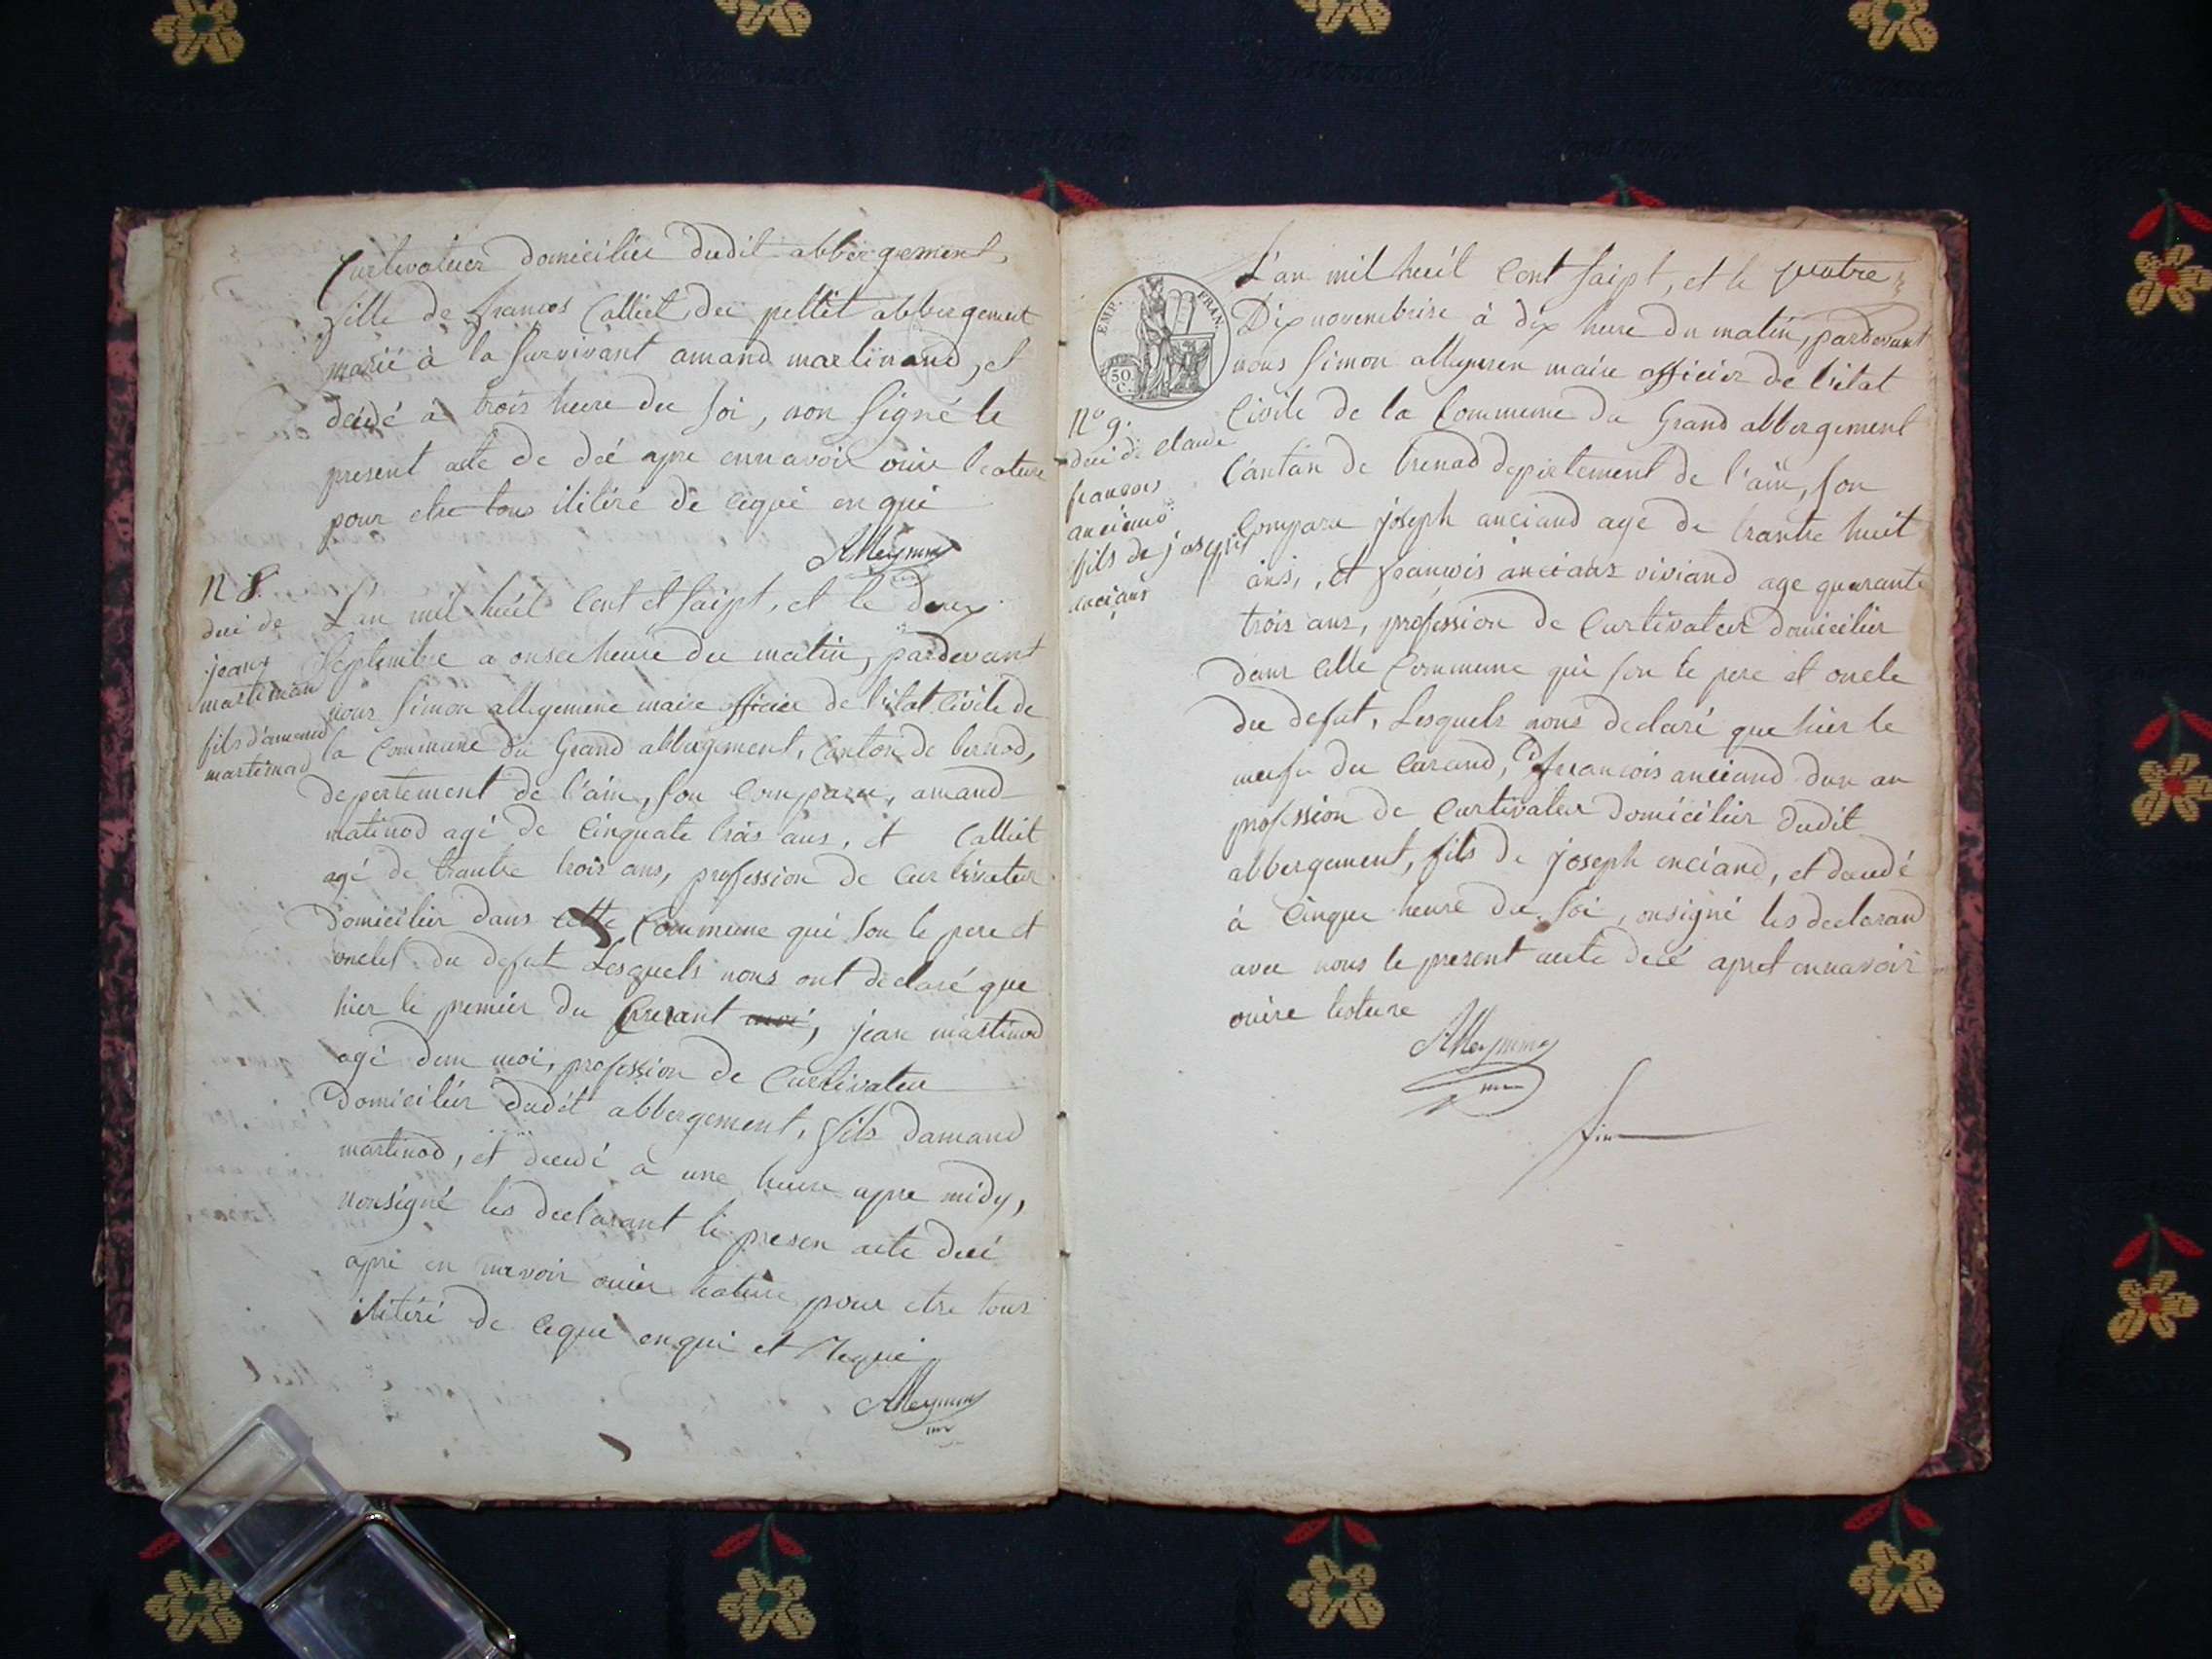 Curtivateur domicilié dudit abbergement,
fille de francos Calliet deu pettit abbergement
marié à la survivant amand martinand, et
décidé à trois heure du soi, non signé le
present acte de déé apre ennavoir ouir leature
pour etre tous ilitéré de cequi enqui
N 8.
deci de
jeanx
martinau
fils d'amand
martinod
L'an mil huit Cent et saipt, et le deux
Septembre a onse heure du matin, pardevant
nous Simon allegemene maire officier de l'état Civile de
la Commune du Grand abbergement, Canton de brenod,
departement de l'ain, son Comparu, amand
matinod agé de Cinquate trois ans, et Calliet
agé de trantre trois ans, profession de Curtivateur
domicilier dans cette Commune qui son le pere et
onclet du defut Lesquels nous ont declaré que
hier le premier du Courant moi, jean martinod
agé dun moi, profession de Curtivateu
domicilier dudit abbergement, fils damand
martinod, et decedé a une heure apre midy,
nonsigné les declarant le presen acte decé
apré en navoir ouier leature pour etre tous
ilitéré de cequi enqui et requi
EMP. FRAN.
50 C.
N° 9.
deci de claude
francois
anciano
fils de joseph
ancians
L'an mil huit Cent saipt, et le quatre
Dix novembrire à dix heure du matin, pardevant
nous Simon allegmen maire officier de l'état
Civile de la Commune du Grand abbergement
Cantan de brenad departement de l'ain, son
Comparu joseph anciand age de trantre huit
ans, et francois anciant viviand age quarante
trois ans, profession de Curtivateur domicilier
dans cette Commune qui son le pere et oncle
du defut, Lesquels nous declaré que hier le
du Carand, Cd francois anciand dun an
profession de Curtivateu domicilier dudit
abbergement, fils de joseph enciand, et daudé
à Cinque heure du soi, onsigné les declaran
avec nous le present acte decé apret ennavoir
ouire lecture
fin